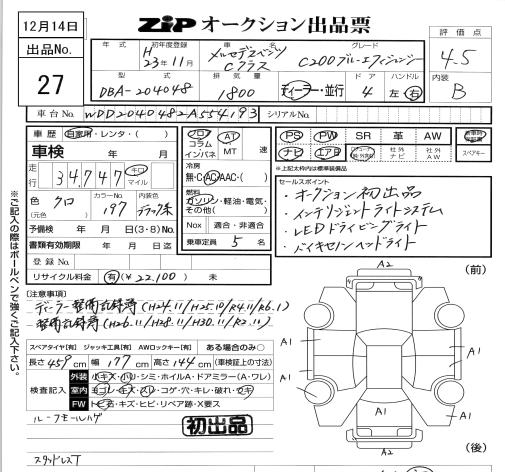 12月14日 ZIP オークション出品票
出品No. 27
年式 初年度登録 車名 グレード 評価点
H 23年11月 メルセデスベンツ Cクラス C200ブルーエフィシェンシー 4.5
型式 排気量 ドア ハンドル 内装
DBA-204048 1800 ディーラー・並行 4 左・右 B
車台No. WDD2040482A554193 シリアルNo.
車歴 自家用・レンタ・( )
車検 年 月 日
走行 34,747 キロ マイル
色 クロ カラーNo. 197 (元色)
予備検 年 月 日(3・8)No.
書類有効期限 年 月 日迄
登録No.
リサイクル料金 有(¥22,100) 未
フロア コラム インパネ AT MT 速
冷房 無・C・AC・AAC・( )
燃料 ガソリン・軽油・電気・その他( )
Nox 適合・非適合
乗車定員 5 名
PS PW SR 革 AW
ナビ エアB 社外ナビ 社外AW スペアキー
※上記太枠内は標準装備品
セールスポイント
・オークション初出品
・インテリジェントライトシステム
・LEDドライビングライト
・バイキセノンヘッドライト
※ご記入の際はボールペンで強くご記入下さい。
[注意事項]
ディーラー整備記録簿(H24.11/H25.10/R4.11/R6.1)
整備記録簿(H26.11/H28.11/H30.11/R2.11)
スペアタイヤ[有] ジャッキ工具[有] AWロックキー[有] ある場合のみ〇
長さ 459 cm 幅 177 cm 高さ 144 cm (車検証上の寸法)
検査記入
外装 小キズ・凹・シミ・ホイルA・ドアミラー(A・ワレ)
室内 ヨゴレ・キズ・スレ・コゲ・穴・キレ・破れ・ウキ
FW トビ石・キズ・ヒビ・リペア跡・X要ス
ルーフモールハゲ
初出品
スタッドレスT
(前)
A2
A1
A1
A1
A1
A1
A2
(後)